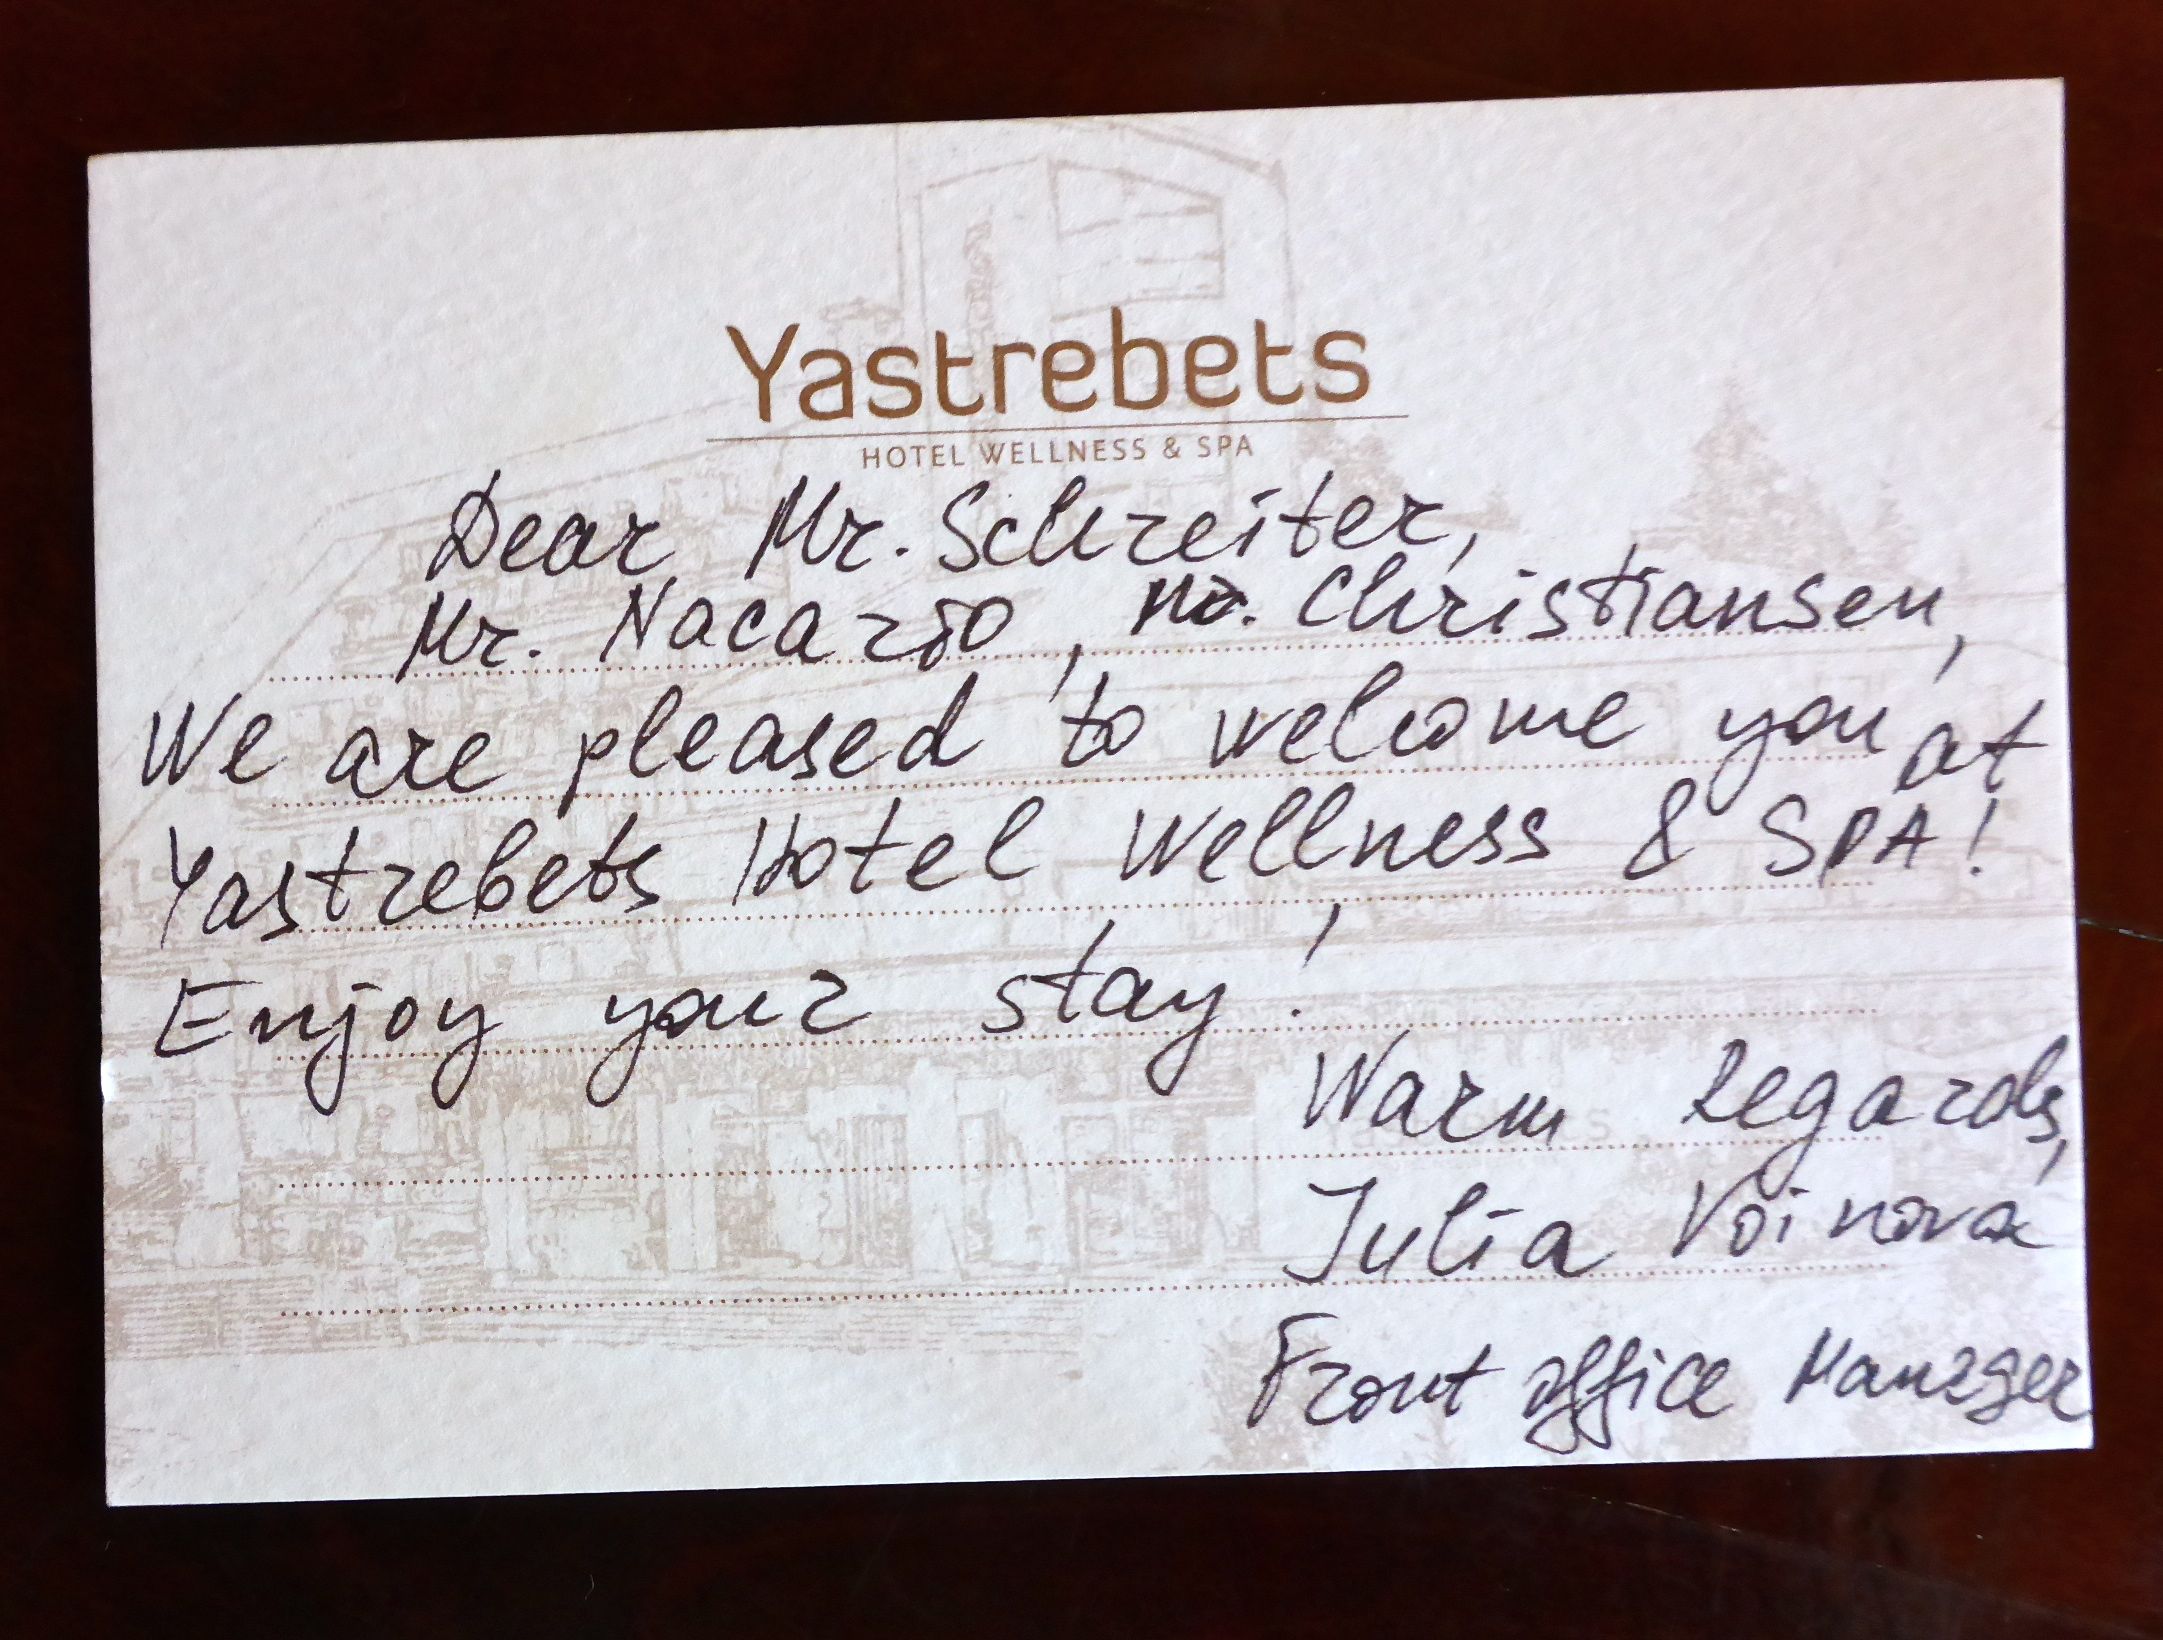 Yastrebets
HOTEL WELLNESS & SPA
Dear Mr. Schreiter,
Mr. Nacario, Mr. Christiansen,
We are pleased to welcome you at
Yastrebets Hotel Wellness & SPA!
Enjoy your stay!
Warm Regards,
Julia Voinova
Front office Manager